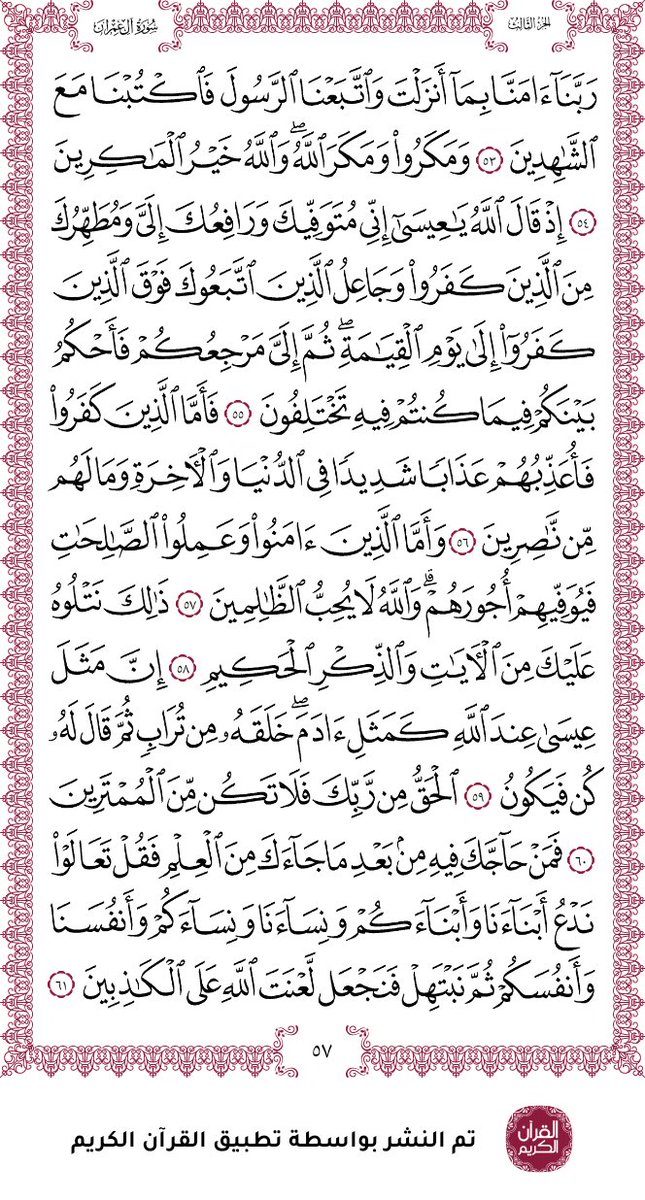 الجزء الثالث
سُورَةُ آلِ عِمْرَان
رَبَّنَآ ءَامَنَّا بِمَآ أَنزَلْتَ وَٱتَّبَعْنَا ٱلرَّسُولَ فَٱكْتُبْنَا مَعَ
ٱلشَّٰهِدِينَ ٥٣ وَمَكَرُوا۟ وَمَكَرَ ٱللَّهُ ۖ وَٱللَّهُ خَيْرُ ٱلْمَٰكِرِينَ
٥٤ إِذْ قَالَ ٱللَّهُ يَٰعِيسَىٰٓ إِنِّى مُتَوَفِّيكَ وَرَافِعُكَ إِلَىَّ وَمُطَهِّرُكَ
مِنَ ٱلَّذِينَ كَفَرُوا۟ وَجَاعِلُ ٱلَّذِينَ ٱتَّبَعُوكَ فَوْقَ ٱلَّذِينَ
كَفَرُوٓا۟ إِلَىٰ يَوْمِ ٱلْقِيَٰمَةِ ۖ ثُمَّ إِلَىَّ مَرْجِعُكُمْ فَأَحْكُمُ
بَيْنَكُمْ فِيمَا كُنتُمْ فِيهِ تَخْتَلِفُونَ ٥٥ فَأَمَّا ٱلَّذِينَ كَفَرُوا۟
فَأُعَذِّبُهُمْ عَذَابًا شَدِيدًا فِى ٱلدُّنْيَا وَٱلْءَاخِرَةِ وَمَا لَهُم
مِّن نَّٰصِرِينَ ٥٦ وَأَمَّا ٱلَّذِينَ ءَامَنُوا۟ وَعَمِلُوا۟ ٱلصَّٰلِحَٰتِ
فَيُوَفِّيهِمْ أُجُورَهُمْ ۗ وَٱللَّهُ لَا يُحِبُّ ٱلظَّٰلِمِينَ ٥٧ ذَٰلِكَ نَتْلُوهُ
عَلَيْكَ مِنَ ٱلْءَايَٰتِ وَٱلذِّكْرِ ٱلْحَكِيمِ ٥٨ إِنَّ مَثَلَ
عِيسَىٰ عِندَ ٱللَّهِ كَمَثَلِ ءَادَمَ ۖ خَلَقَهُۥ مِن تُرَابٍ ثُمَّ قَالَ لَهُۥ
كُن فَيَكُونُ ٥٩ ٱلْحَقُّ مِن رَّبِّكَ فَلَا تَكُن مِّنَ ٱلْمُمْتَرِينَ
٦٠ فَمَنْ حَآجَّكَ فِيهِ مِنۢ بَعْدِ مَا جَآءَكَ مِنَ ٱلْعِلْمِ فَقُلْ تَعَالَوْا۟
نَدْعُ أَبْنَآءَنَا وَأَبْنَآءَكُمْ وَنِسَآءَنَا وَنِسَآءَكُمْ وَأَنفُسَنَا
وَأَنفُسَكُمْ ثُمَّ نَبْتَهِلْ فَنَجْعَل لَّعْنَتَ ٱللَّهِ عَلَى ٱلْكَٰذِبِينَ ٦١
٥٧
القرآن
الكريم
تم النشر بواسطة تطبيق القرآن الكريم